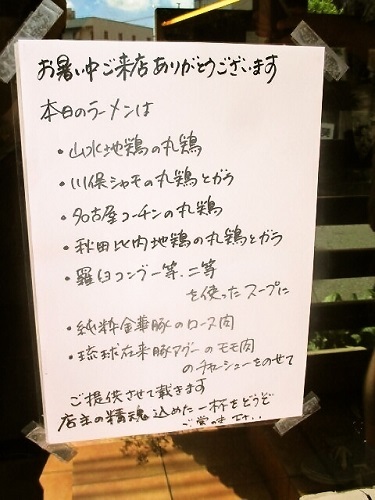 お暑い中ご来店ありがとうございます
本日のラーメンは
・山水地鶏の丸鶏
・川俣シャモの丸鶏とガラ
・名古屋コーチンの丸鶏
・秋田比内地鶏の丸鶏とガラ
・羅臼コンブ一等、二等
を使ったスープに
・純粋金華豚のロース肉
・琉球在来豚アグーのモモ肉
のチャーシューをのせて
ご提供させて戴きます
店主の精魂込めた一杯をどうぞ
ご賞味下さい